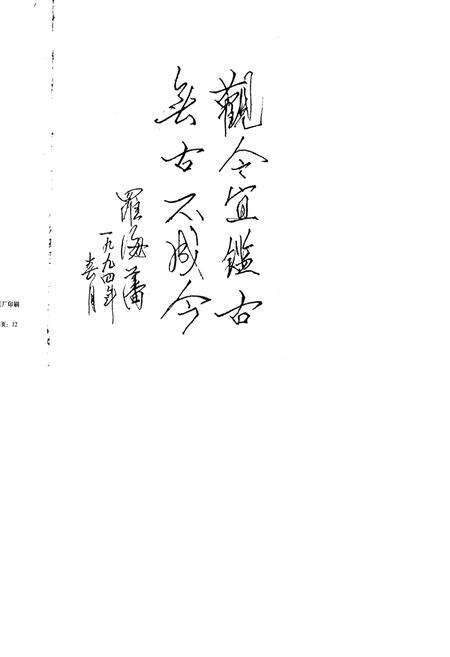 觀今宜鑑古
無古不成今
羅海藩
一九九四年
春月
厂印刷
页：12